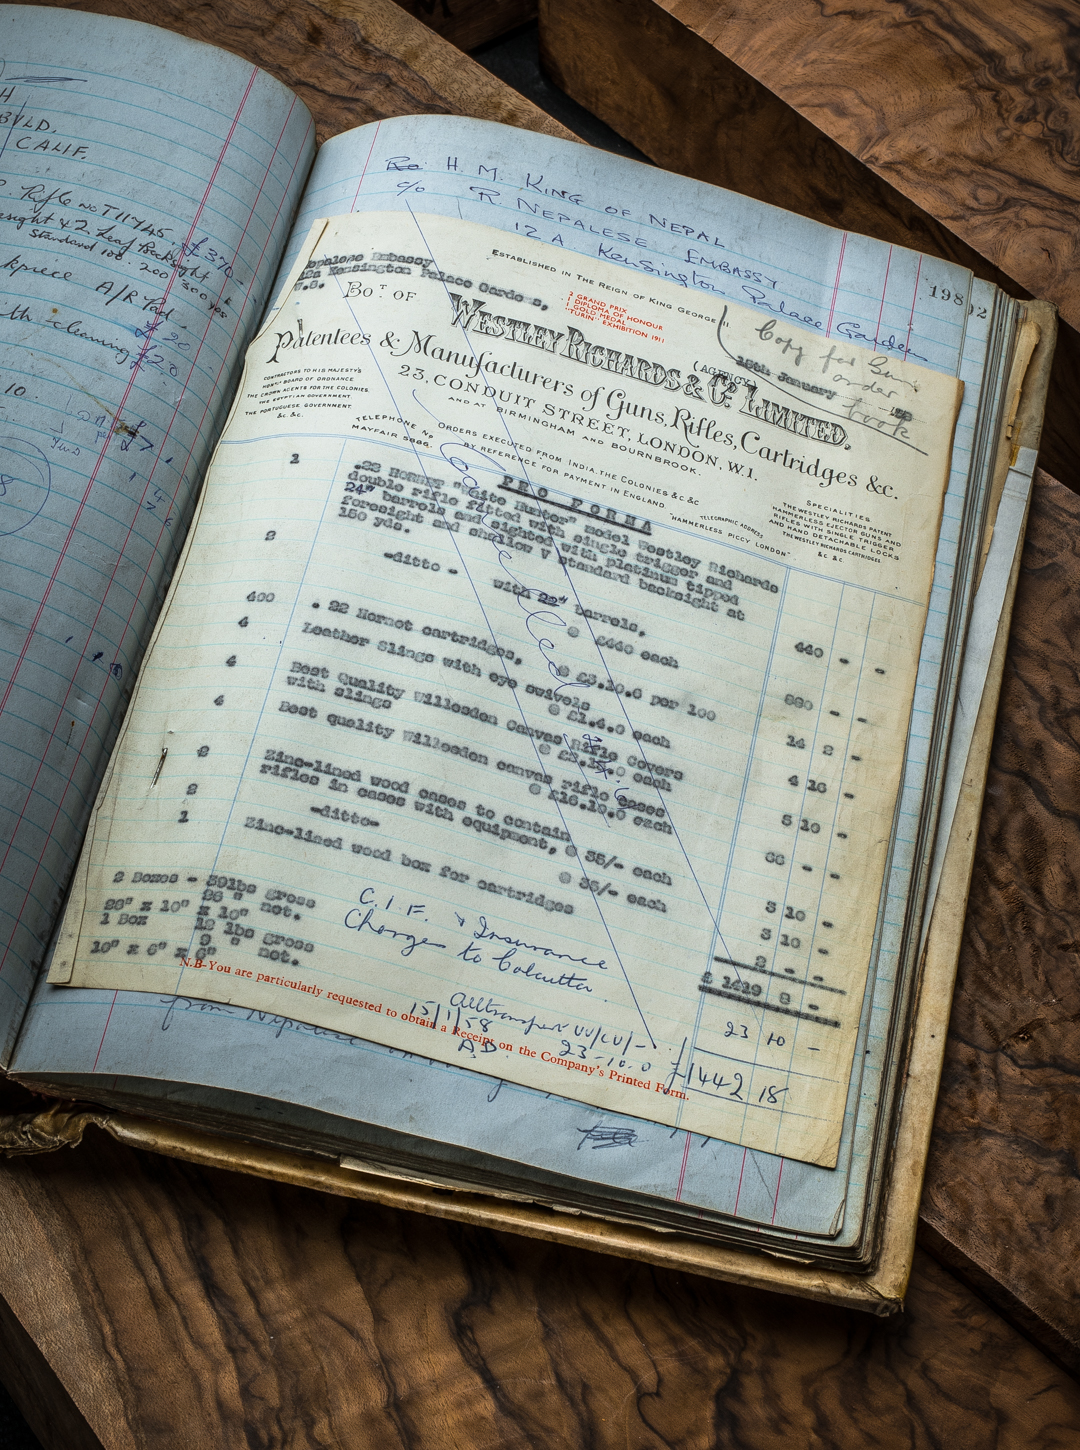 H
BVLD.
CALIF.
Rifle no T11745. £ 370
Standard 100. 200 300 yds
A/R Pad
cleaning £20
10
Re H. M. KING OF NEPAL
c/o R. NEPALESE EMBASSY
12 A. Kensington Palace Gardens
198
92
Copy for Gun
order
book
Nepalese Embassy
12a Kensington Palace Gardens,
W.8.
ESTABLISHED IN THE REIGN OF KING GEORGE III
2 GRAND PRIX
1 DIPLOMA OF HONOUR
1 GOLD MEDAL
"TURIN" EXHIBITION 1911
15th January
BOT. OF
WESTLEY RICHARDS & CO. (AGENCY) LIMITED.
Patentees & Manufacturers of Guns, Rifles, Cartridges &c.
23, CONDUIT STREET, LONDON, W.1.
AND AT BIRMINGHAM AND BOURNBROOK.
CONTRACTORS TO HIS MAJESTY'S
HONBLE BOARD OF ORDNANCE
THE CROWN AGENTS FOR THE COLONIES.
THE EGYPTIAN GOVERNMENT.
THE PORTUGUESE GOVERNMENT
&c. &c.
TELEPHONE No
MAYFAIR 5886.
ORDERS EXECUTED FROM INDIA, THE COLONIES &c &c
BY REFERENCE FOR PAYMENT IN ENGLAND
TELEGRAPHIC ADDRESS
"HAMMERLESS PICCY LONDON".
SPECIALITIES
THE WESTLEY RICHARDS PATENT
HAMMERLESS EJECTOR GUNS AND
RIFLES WITH SINGLE TRIGGER
AND HAND DETACHABLE LOCKS
THE WESTLEY RICHARDS CARTRIDGES
&c. &c.
PRO FORMA
Cancelled
1 .22 HORNET "White Hunter" model Westley Richards
double rifle fitted with single trigger and
24" barrels and sighted with platinum tipped
foresight and shallow V standard backsight at
150 yds. 440 - -
2 -ditto - with 22" barrels,
@ £440 each 880 - -
400 .22 Hornet cartridges, @ £3.10.6 per 100 14 2 -
4 Leather Slings with eye swivels
@ £1.4.0 each 4 16 -
4 Best Quality Willesden Canvas Rifle Covers
with slings each 5 10 -
4 Best quality Willesden canvas rifle cases
@ £16.10.0 each 66 - -
2 Zinc-lined wood cases to contain
rifles in cases with equipment, @ 35/- each 3 10 -
2 -ditto- @ 35/- each 3 10 -
1 Zinc-lined wood box for cartridges 2 - -
£ 1419 8 -
2 Boxes - 39lbs gross
36 " net.
28" x 10" x 10"
1 Box 12 lbs gross
9 " net.
10" x 6" x 6"
C.I.F. & Insurance
Charges to Calcutta. 23 10 -
Alltransport
15/1/58 23-10.0
A.D.
£1442 18
N.B-You are particularly requested to obtain a Receipt on the Company's Printed Form.
from